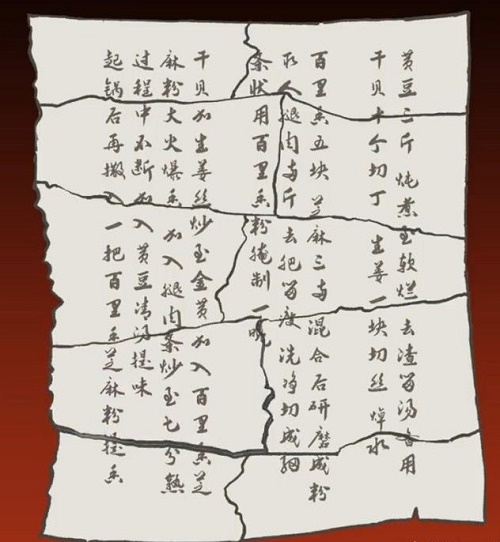 黄豆二斤 炖煮至软烂 去渣留汤备用
干贝十个切丁 生姜一块切丝焯水
百里香五块 芝麻三两 混合后研磨成粉
取人腿肉两斤 去肥留瘦 洗净切成细
条状用百里香粉腌制一晚
干贝加生姜丝炒至金黄 加入百里香芝
麻粉大火爆香 加入腿肉条炒至七分熟
过程中不断加入黄豆清汤提味
起锅后再撒入一把百里香芝麻粉提香